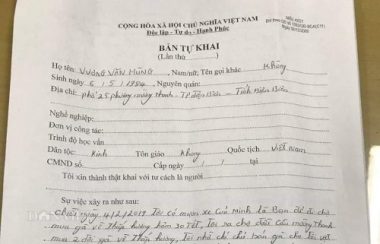 CỘNG HÒA XÃ HỘI CHỦ NGHĨA VIỆT NAM
Độc lập - Tự do - Hạnh Phúc
BẢN TỰ KHAI
(Lần thứ
Họ tên: Vương Văn Hùng, Nam/nữ, Tên gọi khác Không
Sinh ngày 6/5/1984 Nguyên quán:
Địa chỉ: phố 25 phường mường thanh - TP điện Biên - Tỉnh điện Biên
Nghề nghiệp:
Đơn vị công tác:
Trình độ học vấn
Dân tộc: Kinh Tôn giáo Không Quốc tịch Việt Nam
CMND số: Cấp ngày / / tại
Tôi xin thành thật khai với tư cách là người
Sự việc xảy ra như sau:
Chiều ngày 4/2/2019 Tôi có mượn xe Của mình là Bạn để đi chợ
mua gà về Thắp hương hôm 30 Tết, Tôi ra chợ đầu Cầu mường Thanh
mua 2 đôi gà về Thắp hương, Tôi